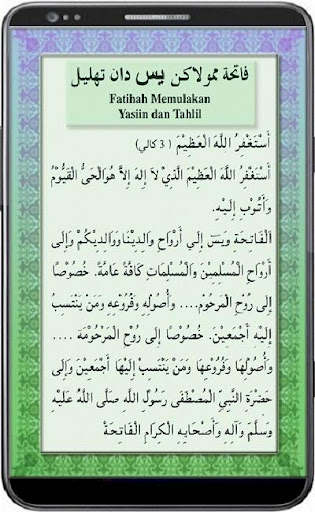 فاتحة ممولاكن يس دان تهليل
Fatihah Memulakan
Yasiin dan Tahlil
أَسْتَغْفِرُ اللَّهَ الْعَظِيْمَ ( 3 كالي)
أَسْتَغْفِرُ اللَّهَ الْعَظِيْمَ الَّذِيْ لاَ إِلهَ إِلاَّ هُوَالْحَيُّ الْقَيُّوْمُ
وَأَتُـوْبُ إِلَيْهِ.
اَلْفَاتِـحَةَ وَيٰسۤ إِلي أَرْوَاحِ وَالِدِيْنَا وَوَالِدِيْكُمْ وَإِلى
أَرْوَاحِ الْمُسْلِمِيْنَ وَالْمُسْلِمَاتِ كَافَّةً عَامَّةً. خُصُوْصًا
إِلى رُوْحِ الْمَرحُوْمِ.... وَأُصُوْلِهِ وَفُرُوْعِهِ وَمَنْ يَنْتَسِبُ
إِلَيْهِ أَجْمَعِيْنَ. خُصُوْصًا إِلى رُوْحِ الْمَرْحُوْمَةِ ....
وَأُصُوْلِهَا وَفُرُوْعِهَا وَمَنْ يَنْتَسِبُ إِلَيْهَا أَجْمَعِيْنَ وَإِلى
حَضْرَةِ النَّبِيِّ الْمُصْطَفَى رَسُوْلِ اللَّهِ صَلَّى اللَّهُ عَلَيْهِ
وَسَلَّمَ وَآلِهِ وَأَصْحَابِهِ الْكِرَامِ الْفَاتِـحَة